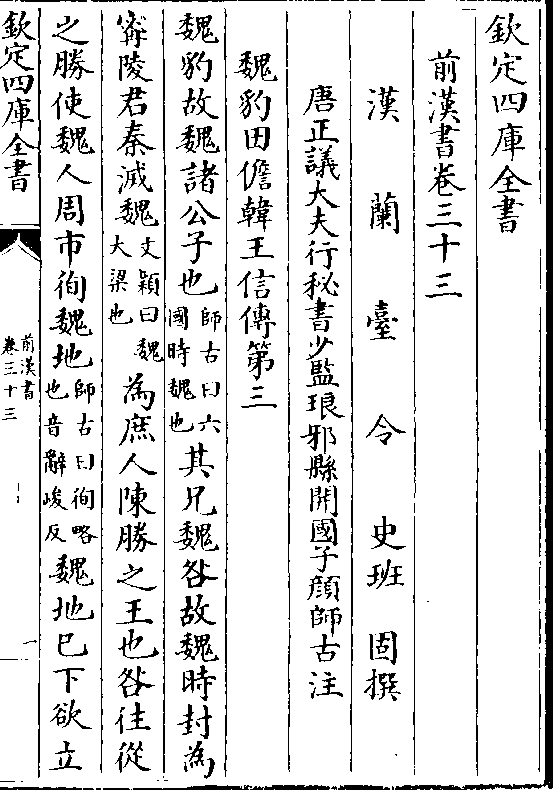 欽定四庫全書
前漢書卷三十三
漢蘭臺令史班固撰
唐正議大夫行秘書少監琅邪縣開國子顔師古注
魏豹田儋韓王信傳第三
魏豹故魏諸公子也師古曰六國時魏也其兄魏咎故魏時封為
甯陵君秦滅魏文穎曰魏大梁也為庶人陳勝之王也咎往從
之勝使魏人周市徇魏地師古曰徇略也音辭峻反魏地已下欲立
欽定四庫全書
前漢書
卷三十三
一